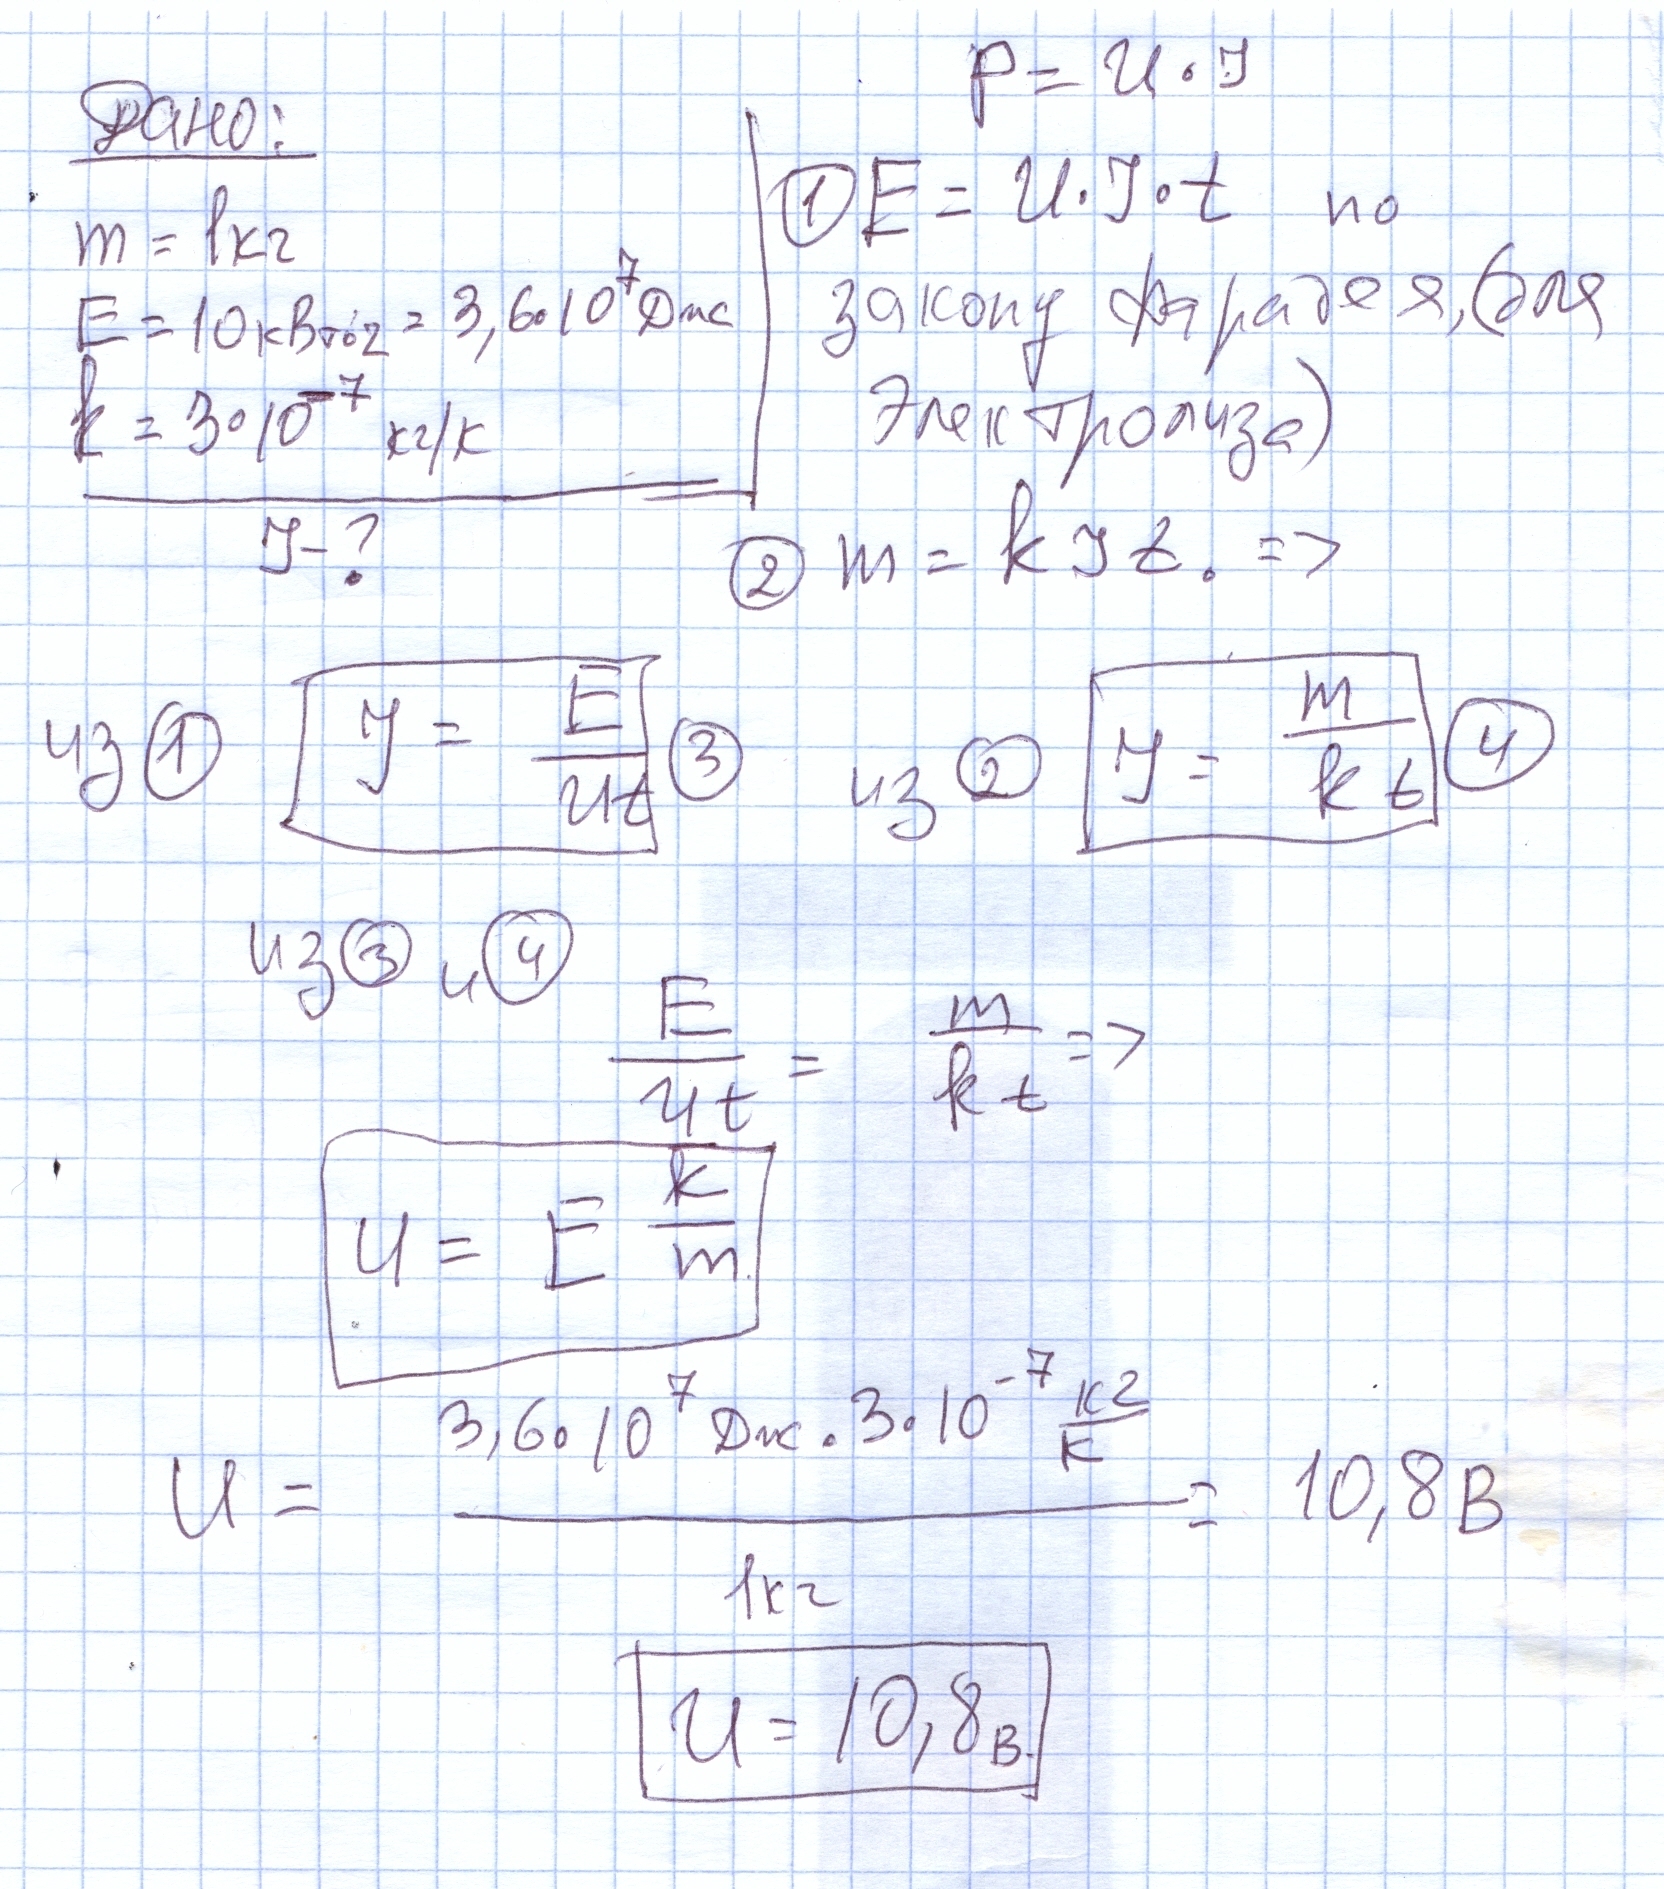 Дано:
m = 1кг
E = 10кВт·ч = 3,6·10⁷ Дж
k = 3·10⁻⁷ кг/К
J-?
P = U·J
① E = U·J·t по
закону Фарадея, (для
электролиза)
② m = kJt. =>
из ① J = E/Ut ③ из ② J = m/kt ④
из ③ и ④
E/Ut = m/kt =>
U = E k/m
U = 3,6·10⁷ Дж · 3·10⁻⁷ кг/К / 1кг = 10,8 В
U = 10,8 В.